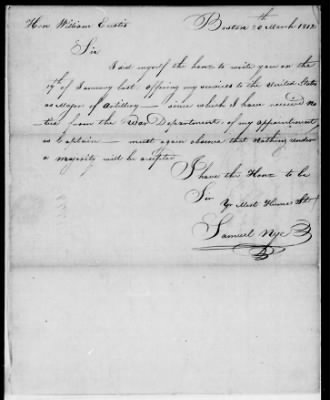 Hon William Eustis
Boston 20th March 1812
Sir
I did myself the honr to write you on the
19th of January last, offering my services to the United States
as Major of Artillery — since which I have received no
tice from the War Department, of my appointment
as Captain — must again observe that nothing under
a majority will be accepted
I have the Honr to be
Sir
Yr Most Humle Sert
Samuel Nye